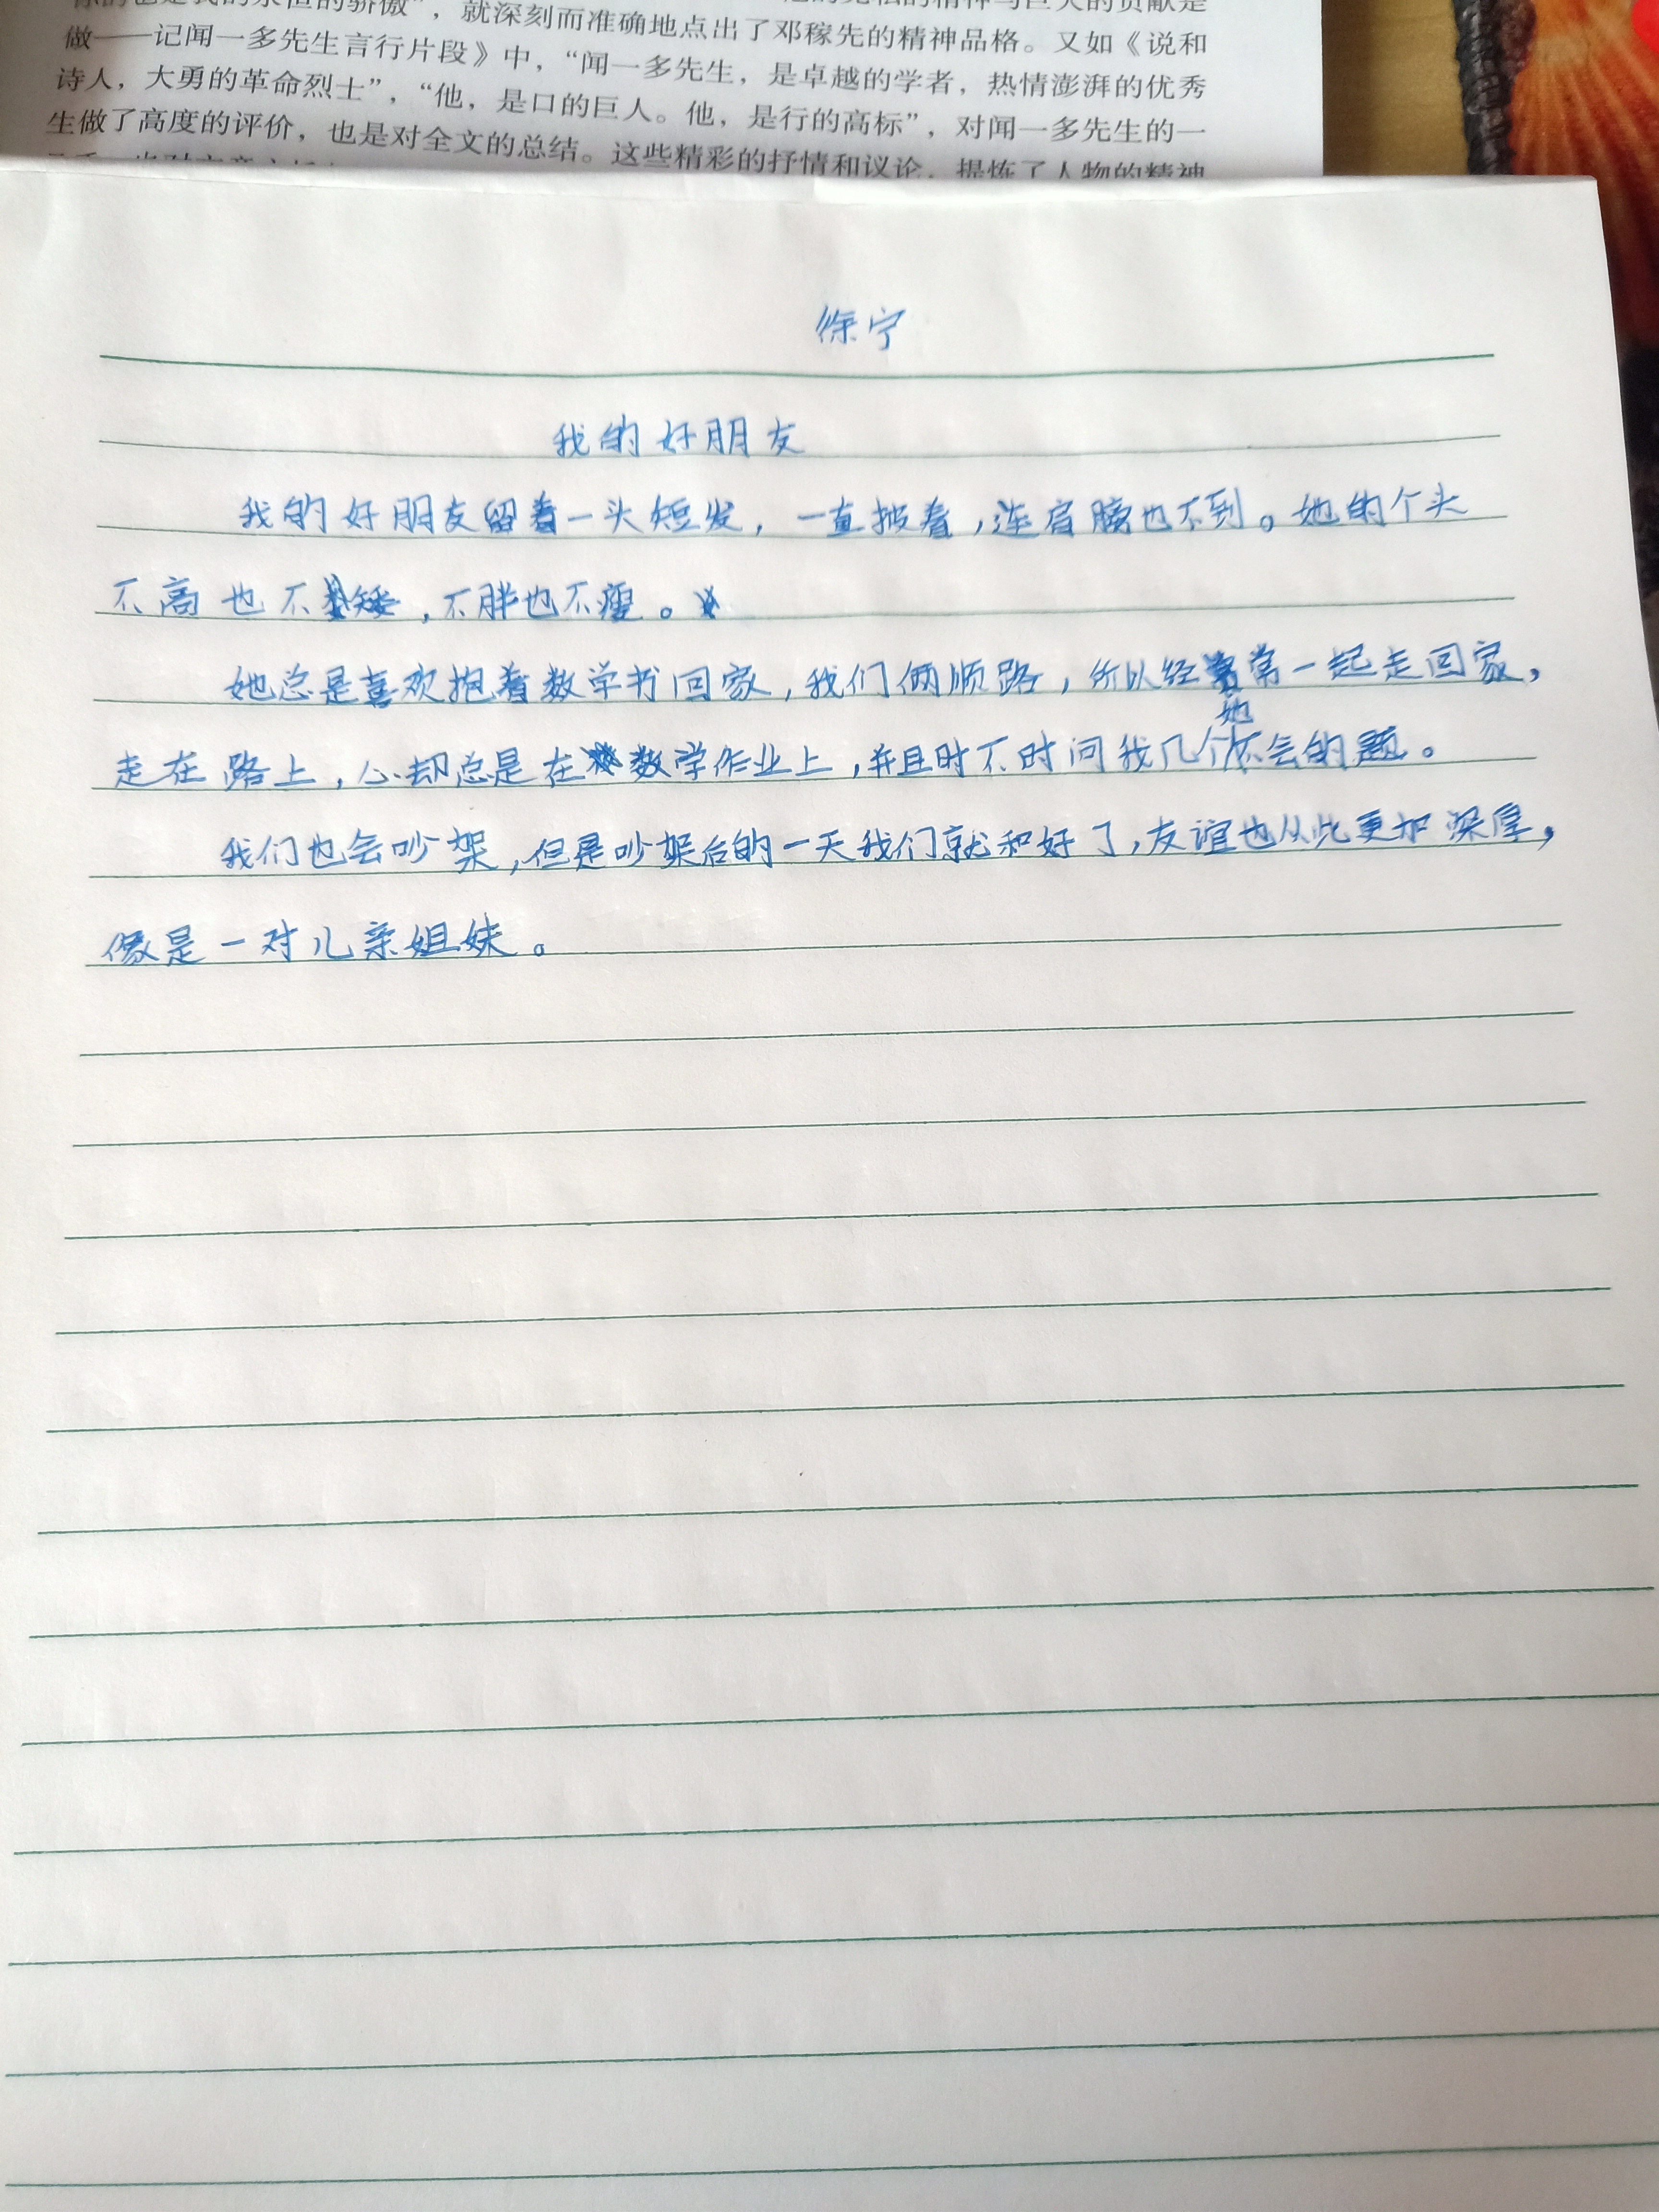 就深刻而准确地点出了邓稼先的精神品格。又如《说和
做——记闻一多先生言行片段》中，“闻一多先生，是卓越的学者，热情澎湃的优秀
诗人，大勇的革命烈士”，“他，是口的巨人。他，是行的高标”，对闻一多先生的一
生做了高度的评价，也是对全文的总结。这些精彩的抒情和议论，提炼了人物的精神
徐宁
我的好朋友
我的好朋友留着一头短发，一直披着，连肩膀也不到。她的个头
不高也不矮，不胖也不瘦。
她总是喜欢抱着数学书回家，我们俩顺路，所以经常一起走回家，
走在路上，心却总是在数学作业上，并且时不时问我几个她不会的题。
我们也会吵架，但是吵架后的一天我们就和好了，友谊也从此更加深厚，
像是一对儿亲姐妹。